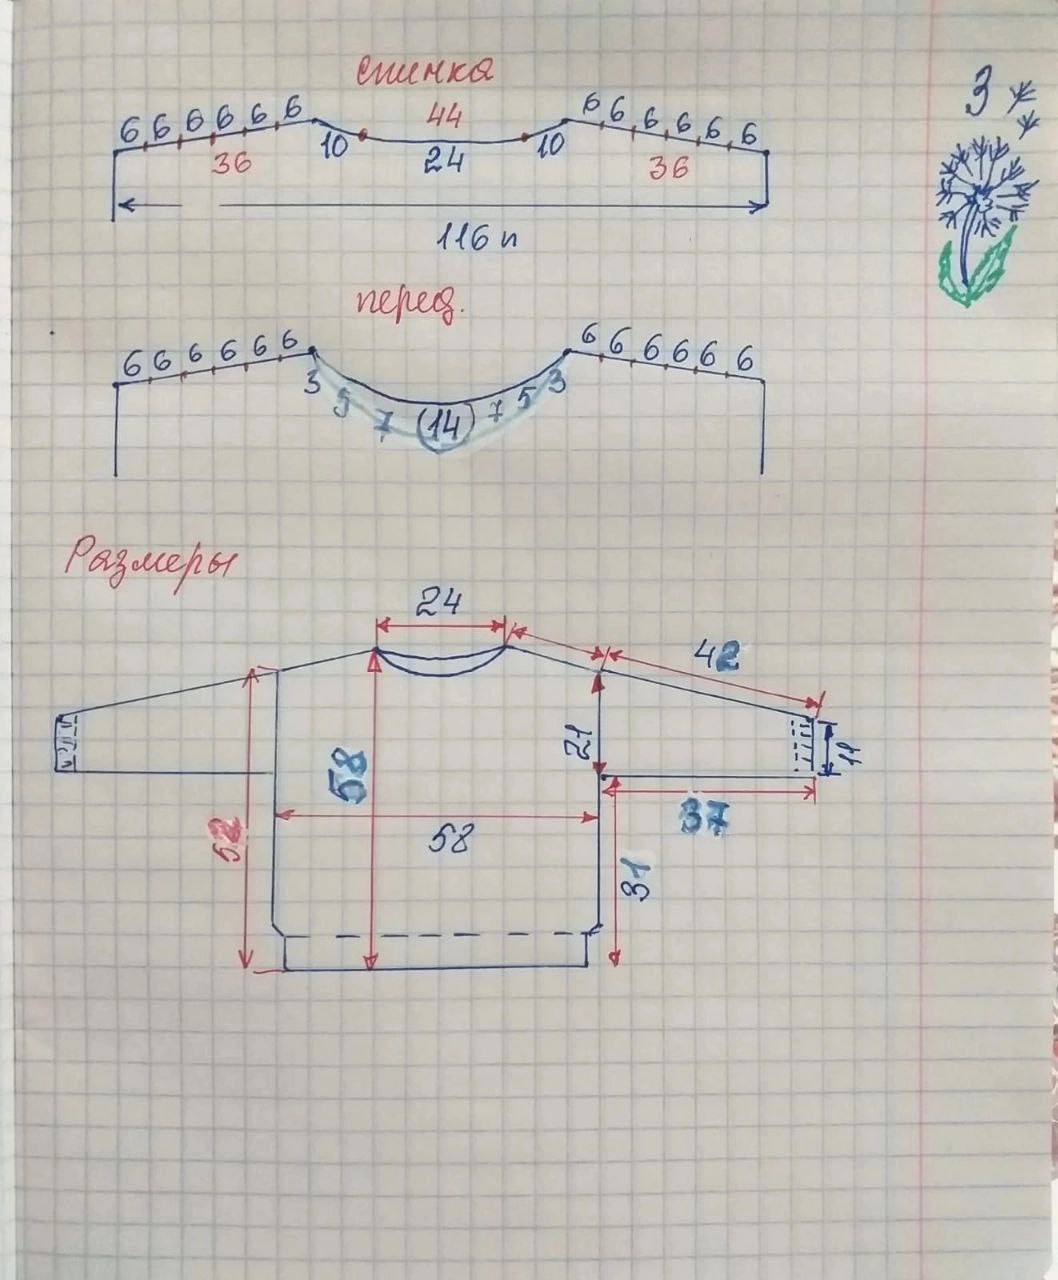 3
спинка
6 6 6 6 6 6 44 6 6 6 6 6 6
36 10 24 10 36
116 п
перед.
6 6 6 6 6 6 6 6 6 6 6 6
3 5 7 (14) 7 5 3
Размеры
24
42
21
11
58
52
58
37
31